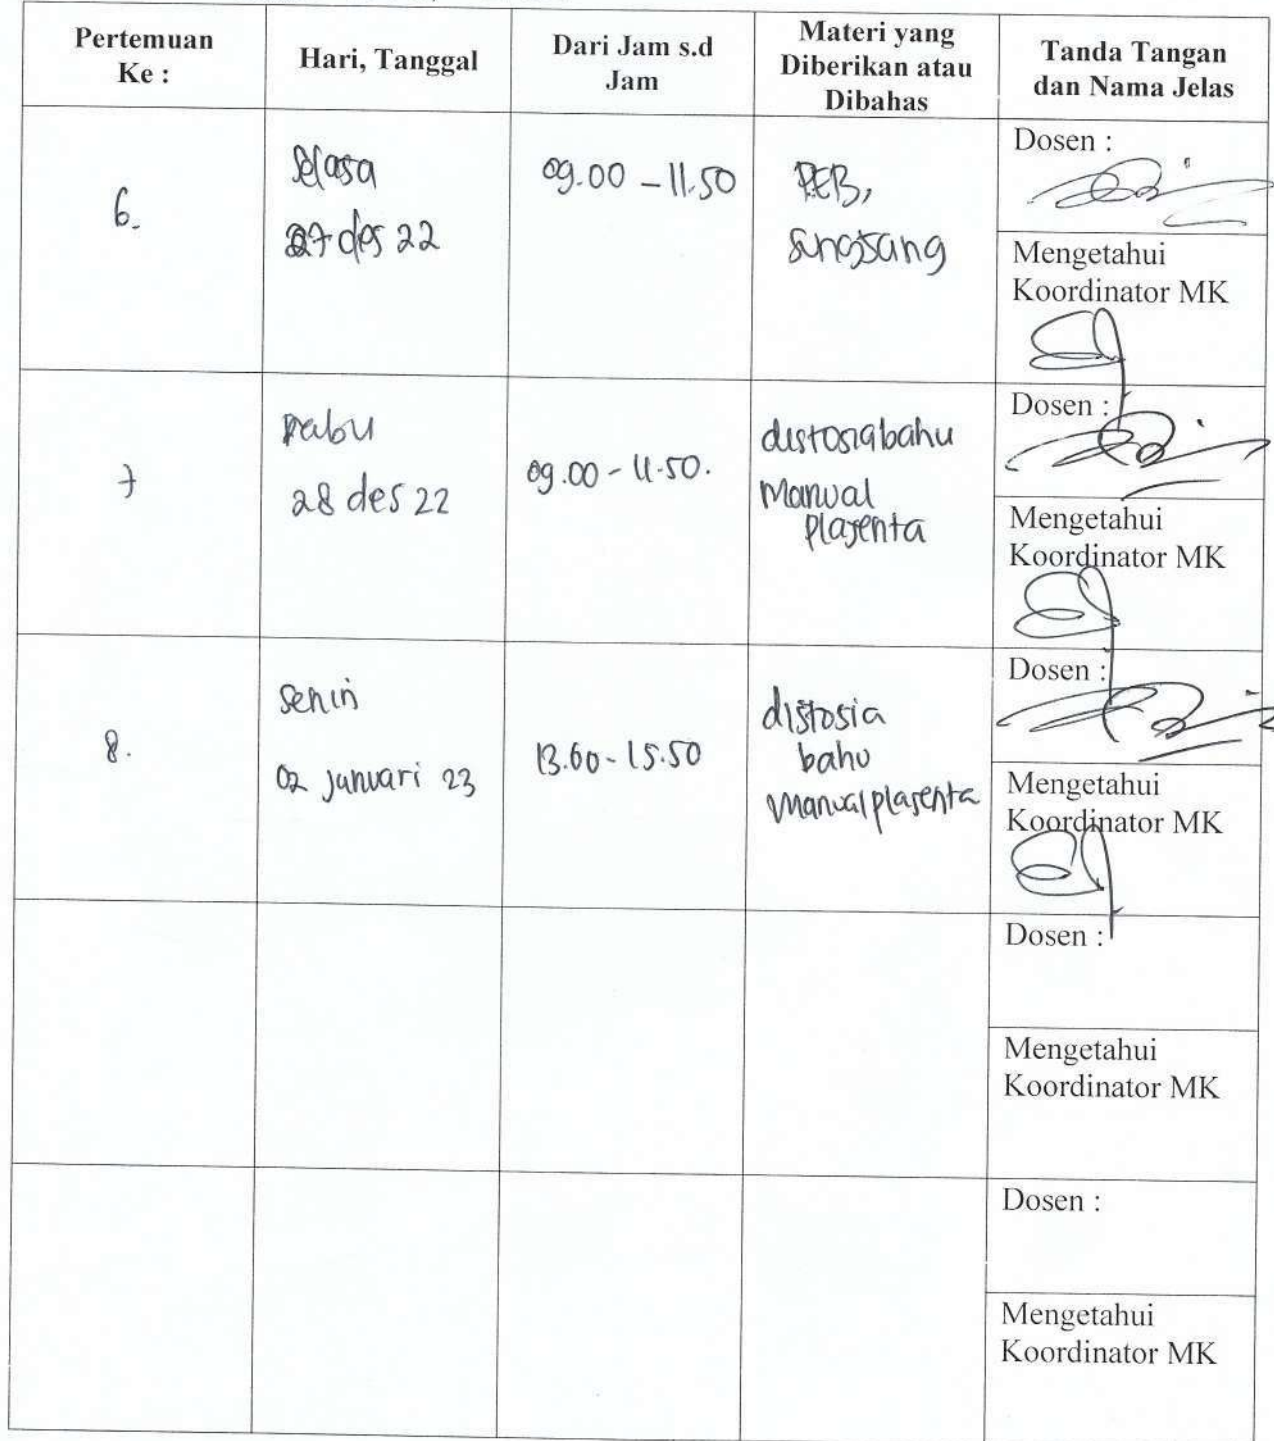 Pertemuan
Ke :
Hari, Tanggal
Dari Jam s.d
Jam
Materi yang
Diberikan atau
Dibahas
Tanda Tangan
dan Nama Jelas
6.
Selasa
27 des 22
09.00 - 11.50
PEB,
sungsang
Dosen :
Mengetahui
Koordinator MK
7
Rabu
28 des 22
09.00 - 11.50.
distosia bahu
Manual
plasenta
Dosen :
Mengetahui
Koordinator MK
8.
Senin
02 Januari 23
13.00 - 15.50
distosia
bahu
Manual plasenta
Dosen :
Mengetahui
Koordinator MK
Dosen :
Mengetahui
Koordinator MK
Dosen :
Mengetahui
Koordinator MK